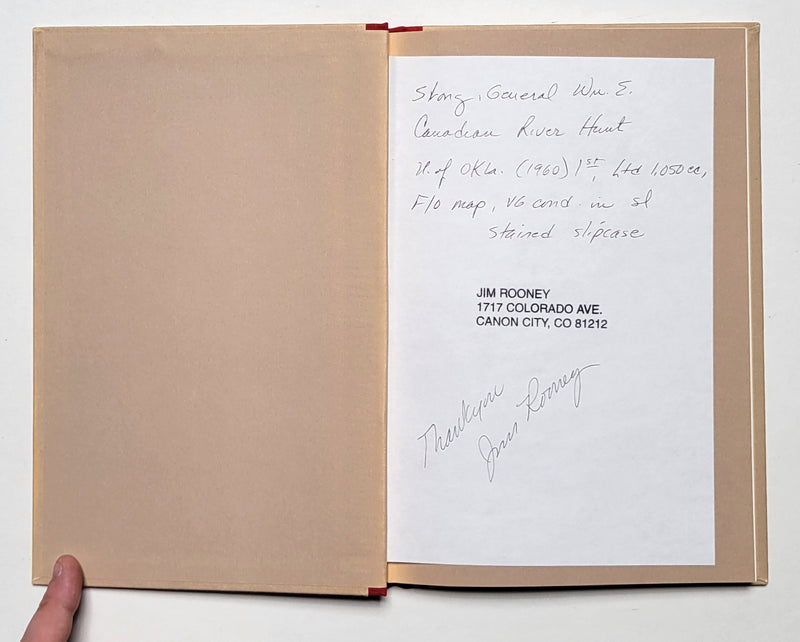 Strong, General Wm. E.
Canadian River Hunt
U. of Okla. (1960) 1st, Ltd 1,050 cc,
F/O map, VG cond. in sl
stained slipcase
JIM ROONEY
1717 COLORADO AVE.
CANON CITY, CO 81212
Thankyou
Jim Rooney